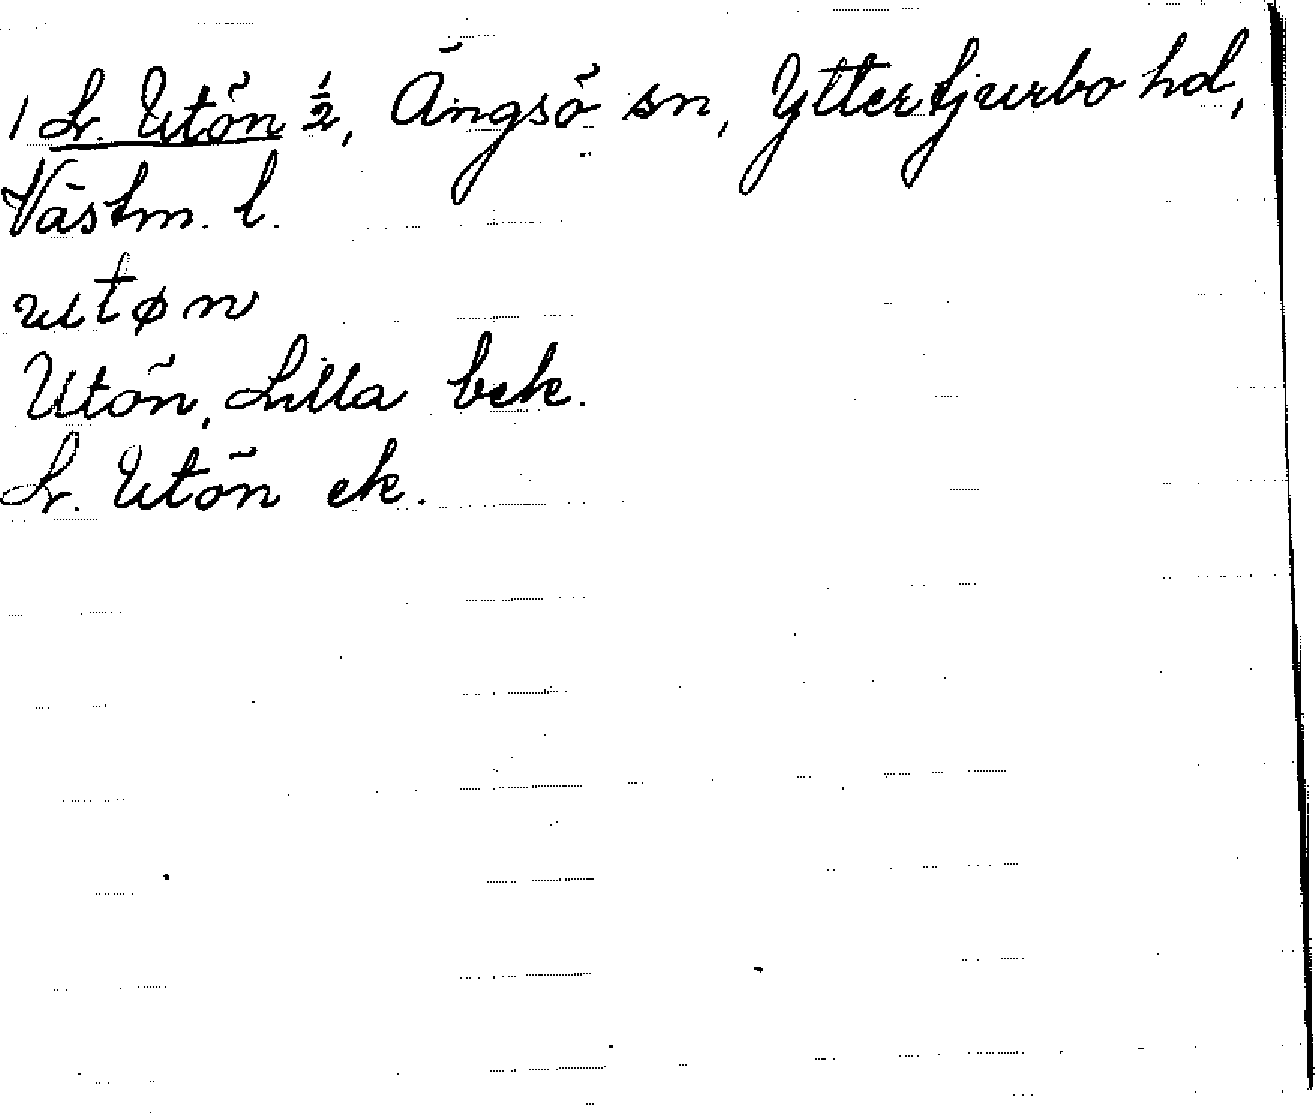 1 L. Utön ½, Ängsö sn, Ytterkjurbo hd,
Västm. l.
utøn
Utön, Lilla bek.
L. Utön ek.